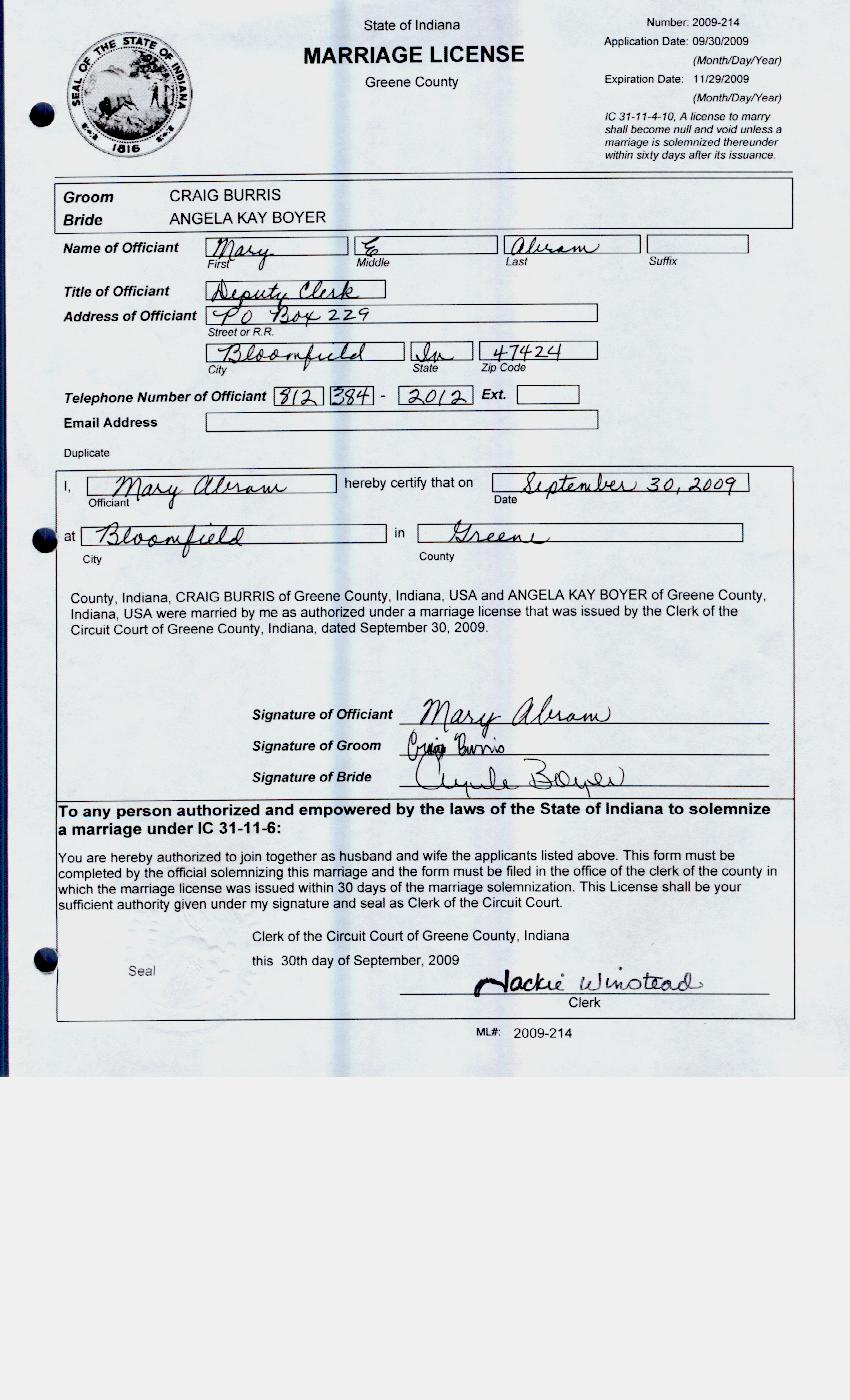 State of Indiana
MARRIAGE LICENSE
Greene County
Number: 2009-214
Application Date: 09/30/2009
(Month/Day/Year)
Expiration Date: 11/29/2009
(Month/Day/Year)
IC 31-11-4-10, A license to marry
shall become null and void unless a
marriage is solemnized thereunder
within sixty days after its issuance.
SEAL OF THE STATE OF INDIANA
1816
Groom CRAIG BURRIS
Bride ANGELA KAY BOYER
Name of Officiant Mary E Abram
First Middle Last Suffix
Title of Officiant Deputy Clerk
Address of Officiant PO Box 229
Street or R.R.
Bloomfield In 47424
City State Zip Code
Telephone Number of Officiant 812 384 - 2012 Ext.
Email Address
Duplicate
I, Mary Abram hereby certify that on September 30, 2009
Officiant Date
at Bloomfield in Greene
City County
County, Indiana, CRAIG BURRIS of Greene County, Indiana, USA and ANGELA KAY BOYER of Greene County,
Indiana, USA were married by me as authorized under a marriage license that was issued by the Clerk of the
Circuit Court of Greene County, Indiana, dated September 30, 2009.
Signature of Officiant Mary Abram
Signature of Groom Craig Burris
Signature of Bride Boyer
To any person authorized and empowered by the laws of the State of Indiana to solemnize
a marriage under IC 31-11-6:
You are hereby authorized to join together as husband and wife the applicants listed above. This form must be
completed by the official solemnizing this marriage and the form must be filed in the office of the clerk of the county in
which the marriage license was issued within 30 days of the marriage solemnization. This License shall be your
sufficient authority given under my signature and seal as Clerk of the Circuit Court.
Clerk of the Circuit Court of Greene County, Indiana
this 30th day of September, 2009
Seal
Jackie Winstead
Clerk
ML#: 2009-214